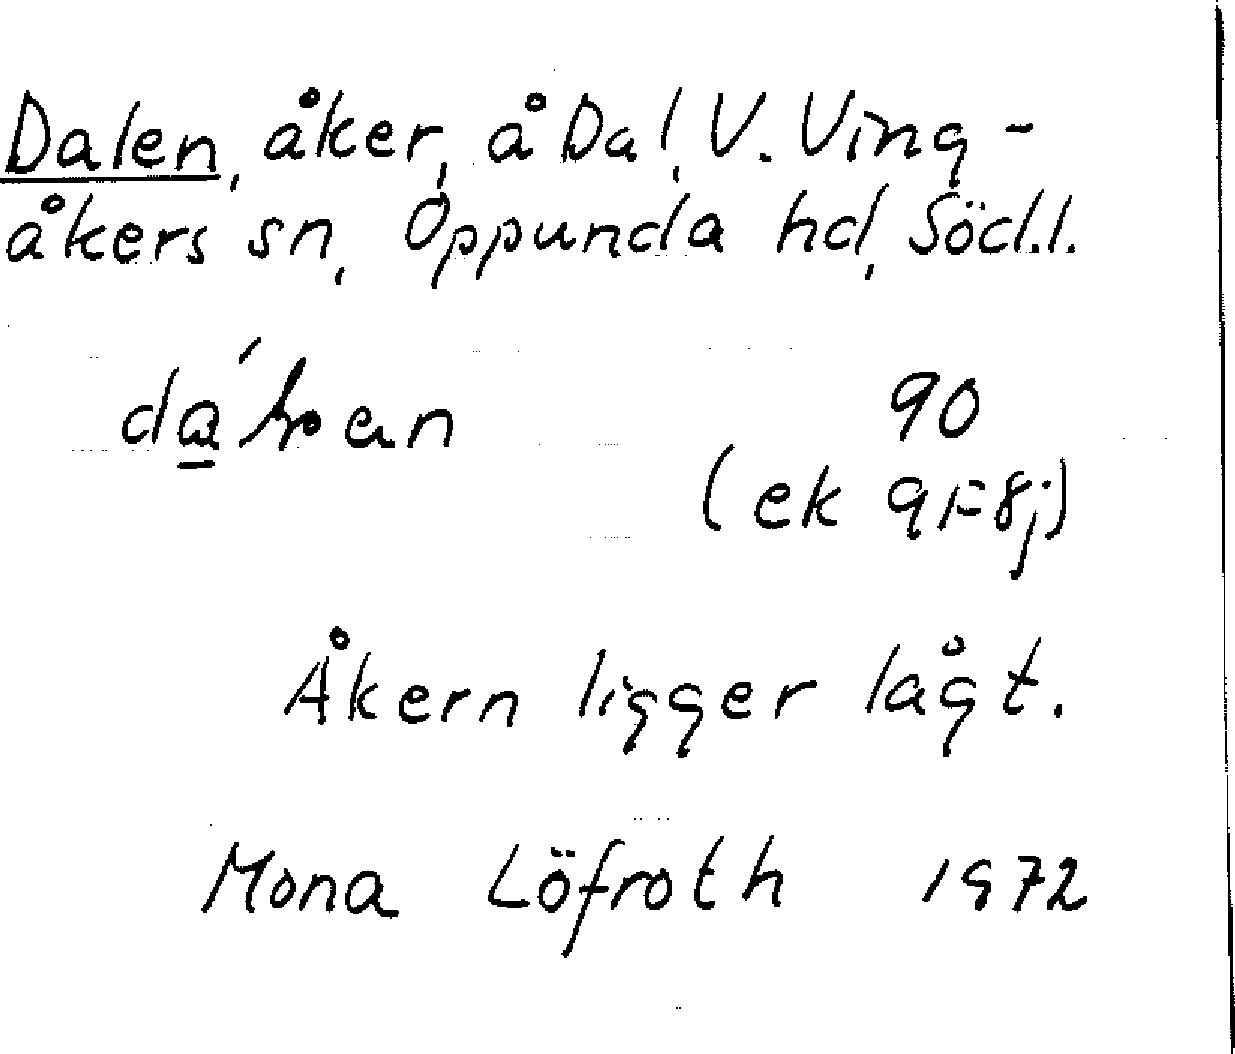 Dalen, åker, å Dal, V. Ving-
åkers sn, Oppunda hd, Söd.l.
90
(ek 9F8j)
Åkern ligger lågt.
Mona Löfroth 1972